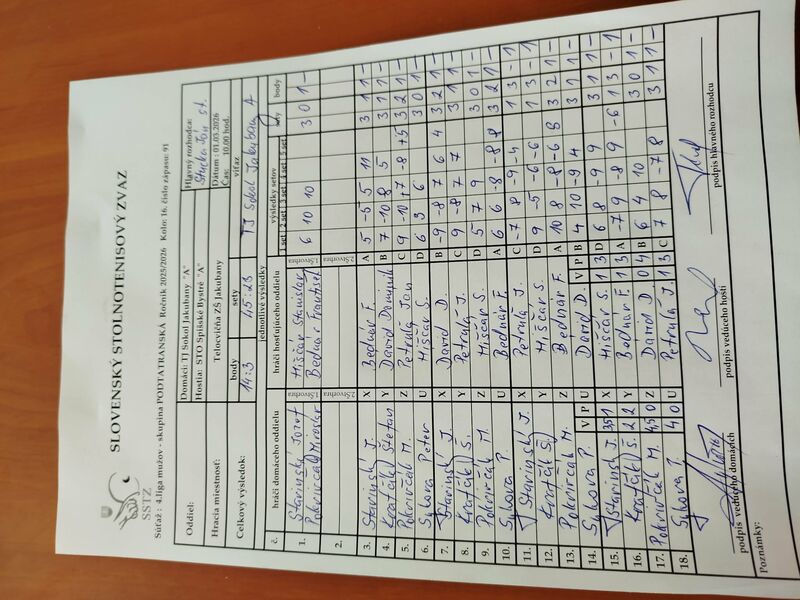 SLOVENSKÝ STOLNOTENISOVÝ ZVAZ
SSTZ
Súťaž : 4.liga mužov - skupina PODTATRANSKÁ Ročník 2025/2026 Kolo: 16, číslo zápasu: 91
Oddiel: Domáci: TJ Sokol Jakubany "A" Hlavný rozhodca:
Hostia: STO Spišské Bystré "A"
Hracia miestnosť: Telocvičňa ZŠ Jakubany Dátum : 01.03.2026
Čas: 10.00 hod.
Celkový výsledok: body sety víťaz
14:3 45:23 TJ Sokol Jakubany A
jednotlivé výsledky
č. hráči domáceho oddielu hráči hosťujúceho oddielu výsledky setov sety body
1.set 2.set 3.set 4.set 5.set
1. Starinský Jozef 1.štvorhra Hiščár Stanislav 6 10 10 3 0 1 -
Pokrivčák Miroslav Bednár František
2. 2.štvorhra 2.štvorhra
3. Starinský J. X Bednár F. A 5 -5 5 11 3 1 1 -
4. Kraťčák Štefan Y Dávid Dominik B 7 -10 8 5 3 1 1 -
5. Pokrivčák M. Z Petrulá Ján C 9 -10 +7 -8 +5 3 2 1 -
6. Sykora Peter U Hiščár S. D 6 3 6 3 0 1 -
7. Starinský J. X Dávid D. B -9 -8 7 6 4 3 2 1 -
8. Kraťčák Š. Y Petrulá J. C 9 -8 7 7 3 1 1 -
9. Pokrivčák M. Z Hiščár S. D 5 7 9 3 0 1 -
10. Sykora P. U Bednár F. A 6 6 -8 -8 8 3 2 1 -
11. Starinský J. X Petrulá J. C -7 8 -9 -4 1 3 - 1
12. Kraťčák Š. Y Hiščár S. D 9 -5 -6 -6 1 3 - 1
13. Pokrivčák M. Z Bednár F. A 10 8 -8 -6 8 3 2 1 -
14. Sykora P. V P U Dávid D. V P B 4 10 -9 4 3 1 1 -
15. Starinský J. 3 1 X Hiščár S. 1 3 D 6 8 -9 9 3 1 1 -
16. Kraťčák Š. 2 2 Y Bednár F. 1 3 A -7 9 -8 -6 1 3 - 1
17. Pokrivčák M. 4 0 Z Dávid D. 0 4 B 6 4 10 3 0 1 -
18. Sykora P. 4 0 U Petrulá J. 1 3 C 7 8 -7 8 3 1 1 -
podpis vedúceho domácich podpis vedúceho hostí podpis hlavného rozhodcu
Poznámky: